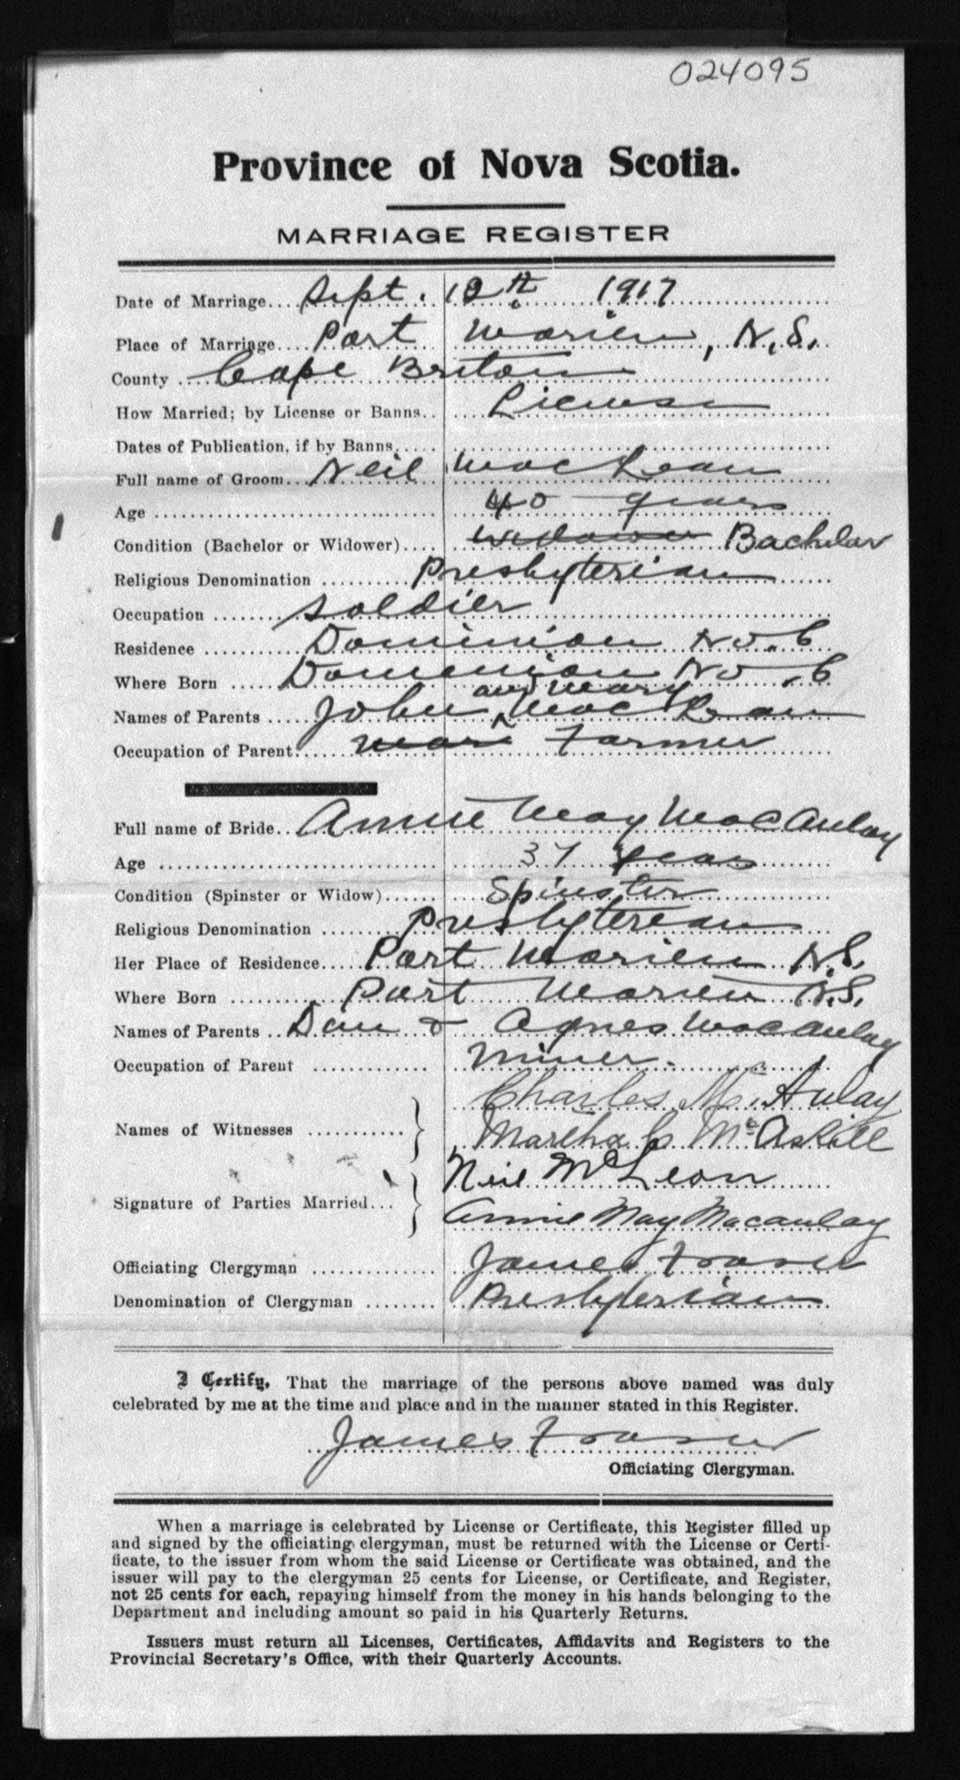 024095
Province of Nova Scotia.
MARRIAGE REGISTER
Date of Marriage.... Sept. 12th 1917
Place of Marriage.... Port Morien, N.S.
County .... Cape Breton
How Married; by License or Banns.. License
Dates of Publication, if by Banns.....
Full name of Groom... Neil MacLean
Age .... 40 years
Condition (Bachelor or Widower).... Widower Bachelor
Religious Denomination .... Presbyterian
Occupation .... Soldier
Residence .... Dominion No. 6
Where Born .... Dominion No. 6
Names of Parents .... John and Mary MacLean
Occupation of Parent.... Farmer
Full name of Bride.. Annie May MacAulay
Age .... 37 years
Condition (Spinster or Widow).... Spinster
Religious Denomination .... Presbyterian
Her Place of Residence.... Port Morien N.S.
Where Born .... Port Morien N.S.
Names of Parents .. Dan & Agnes MacAulay
Occupation of Parent .... Miner.
Charles McAulay
Names of Witnesses ....
Martha C. McAskill
Neil McLeon
Signature of Parties Married...
Annie May Macaulay
Officiating Clergyman .... James Fraser
Denomination of Clergyman .... Presbyterian
I Certify, That the marriage of the persons above named was duly
celebrated by me at the time and place and in the manner stated in this Register.
James Fraser
Officiating Clergyman.
When a marriage is celebrated by License or Certificate, this Register filled up
and signed by the officiating clergyman, must be returned with the License or Certi-
ficate, to the issuer from whom the said License or Certificate was obtained, and the
issuer will pay to the clergyman 25 cents for License, or Certificate, and Register,
not 25 cents for each, repaying himself from the money in his hands belonging to the
Department and including amount so paid in his Quarterly Returns.
Issuers must return all Licenses, Certificates, Affidavits and Registers to the
Provincial Secretary's Office, with their Quarterly Accounts.